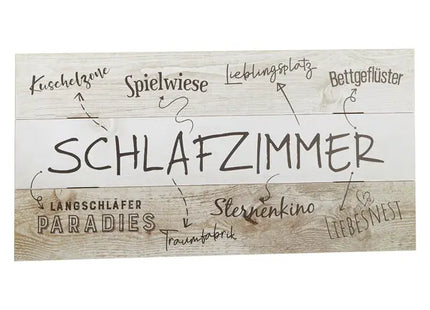 Kuschelzone
Spielwiese
Lieblingsplatz
Bettgeflüster
SCHLAFZIMMER
LANGSCHLÄFER
PARADIES
Traumfabrik
Sternenkino
LIEBESNEST